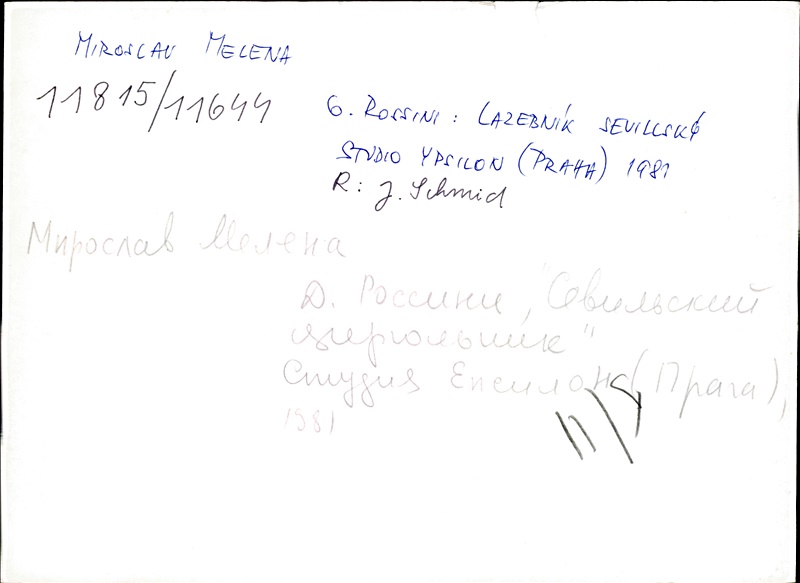 MIROSLAV MELENA
11815/11644
G. ROSSINI: LAZEBNÍK SEVILLSKÝ
STUDIO YPSILON (PRAHA) 1981
R: J. Schmid
Мирослав Мелена
Д. Россини, "Севильский
цирюльник"
Студия Епсилон (Прага),
1981